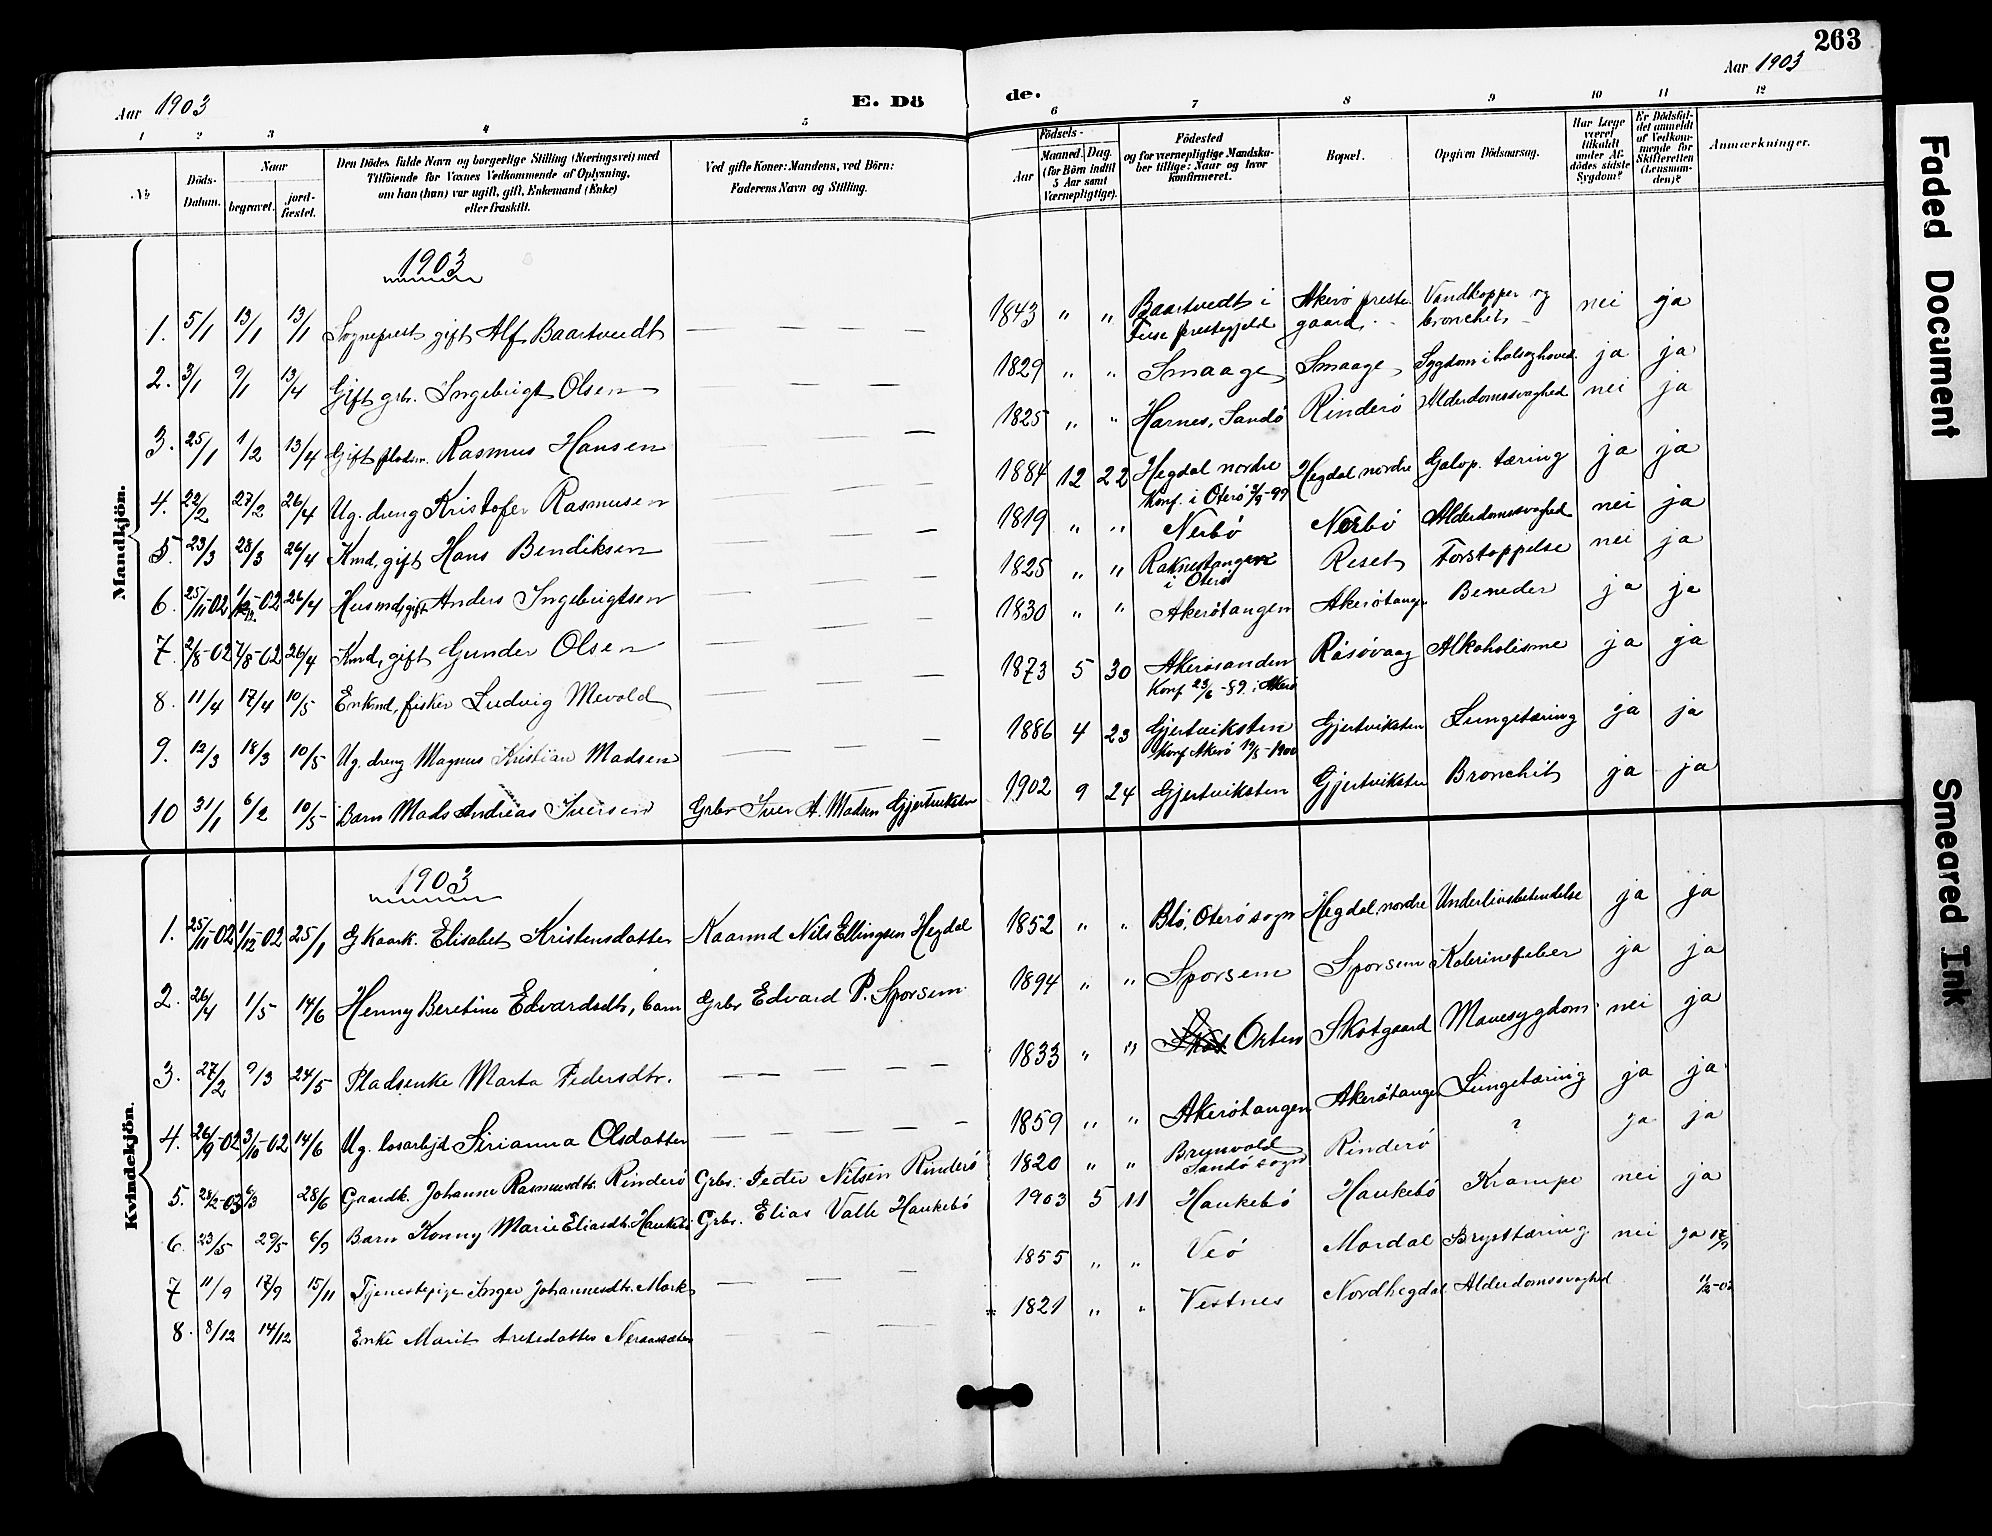 263
Aar 1903
E. Dö
de.
Aar 1903
1 2 3 4 5 6 7 8 9 10 11 12
No
Döds-Datum.
Naar
begravet.
jord-fæstet.
Den Dödes fulde Navn og borgerlige Stilling (Næringsvei) med
Tilföiende for Voxnes Vedkommende af Oplysning,
om han (hun) var ugift, gift, Enkemand (Enke)
eller fraskilt.
Ved gifte Koner: Mandens, ved Börn:
Faderens Navn og Stilling.
Födsels-
Aar
Maaned. Dag.
(for Börn indtil
5 Aar samt
Værnepligtige).
Födested
og for værnepligtige Mandska-
ber tillige: Naar og hvor
konfirmeret.
Bopæl.
Opgiven Dödsaarsag.
Har Læge
været
tilkaldt
under Af-
dödes sidste
Sygdom?
Er Dödsfal-
det anmeldt
af Vedkom-
mende for
Skifteretten
(Lensman-
den)?
Anmærkninger.
Mandkjön.
1903
1. 5/1 13/1 13/1 Sogneprest gift Alf Baartvedt — 1843 " " Baartvedt i Fuse prestegjeld Akerö preste-gaard Vandkopper og bronchit nei ja
2. 3/1 9/1 13/4 Gift grbr. Ingebrigt Olsen — 1829 " " Smaage Smaage Sygdom i hals og hoved ja ja
3. 25/1 1/2 13/4 Gift pladsm. Rasmus Hansen — 1825 " " Harnes, Sandö Rinderö Alderdomssvaghed nei ja
4. 22/2 27/2 26/4 Ug. dreng Kristofer Rasmusen — 1884 12 22 Hegdal nordre Konf. i Oterö -99 Hegdal nordre Galop. tæring ja ja
5. 23/3 28/3 26/4 Kmd, gift Hans Bendiksen — 1819 " " Nerbö Nerbö Alderdomssvaghed nei ja
6. 25/11-02 -02 26/4 Husmd, gift Anders Ingebrigtsen — 1825 " " Raknestangen i Oterö Reset Forstoppelse nei ja
7. 2/8-02 7/8-02 26/4 Kmd, gift Gunder Olsen — 1830 " " Akerötangen Akerötangen Beneder ja ja
8. 11/4 17/4 10/5 Enkmd, fisker Ludvig Mevold — 1873 5 30 Akerösanden Konf 23/6-89 i Akerö Rösövaag Alkoholisme ja ja
9. 12/3 18/3 10/5 Ug. dreng Magnus Kristian Madsen — 1886 4 23 Gjertviksten Konf Akerö -1900 Gjertviksten Lungetæring ja ja
10 31/1 6/2 10/5 Barn Mads Andreas Iversen Grbr Iver A. Madsen Gjertviksten 1902 9 24 Gjertviksten Gjertviksten Bronchit ja ja
Kvindekjön.
1903
1. 25/11-02 1/12-02 25/1 G Kaark. Elisabet Kristensdatter Kaarmd Nils Ellingsen Hegdal 1852 " " Blö, Oterö sogn Hegdal, nordre Underlivsbetendelse ja ja
2. 26/4 1/5 14/6 Henny Beretine Edvardsdtr, barn Grbr Edvard P. Sporsem 1894 " " Sporsem Sporsem Kolerinefeber ja ja
3. 27/2 9/3 24/5 Pladsenke Marta Pedersdtr. — 1833 " " Orten Skotgaard Mavesygdom nei ja
4. 26/9-02 3/10-02 14/6 Ug. losarbejd Sirianna Olsdatter — 1859 " " Akerötangen Akerötangen Lungetæring ja ja
5. -03 28/6 Gaardk. Johanne Rasmusdtr. Rinderö Grbr. Peder Nilsen Rinderö 1820 " " Brynvold Sandö sogn Rinderö ? ja ja
6. 23/5 29/5 6/9 Barn Konny Marie Eliasdtr. Haukebö Grbr. Elias Valle Haukebö 1903 5 11 Haukebö Haukebö Krampe nei ja
7 11/9 17/9 15/11 Tjenestepige Inger Johannesdtr. Mork — 1855 " " Veö Mordal Brysttæring nei ja 17/9
8. 8/12 14/12 Enke Marit — 1821 " " Vestnes Nordhegdal Alderdomssvaghed
Faded Document
Smeared Ink